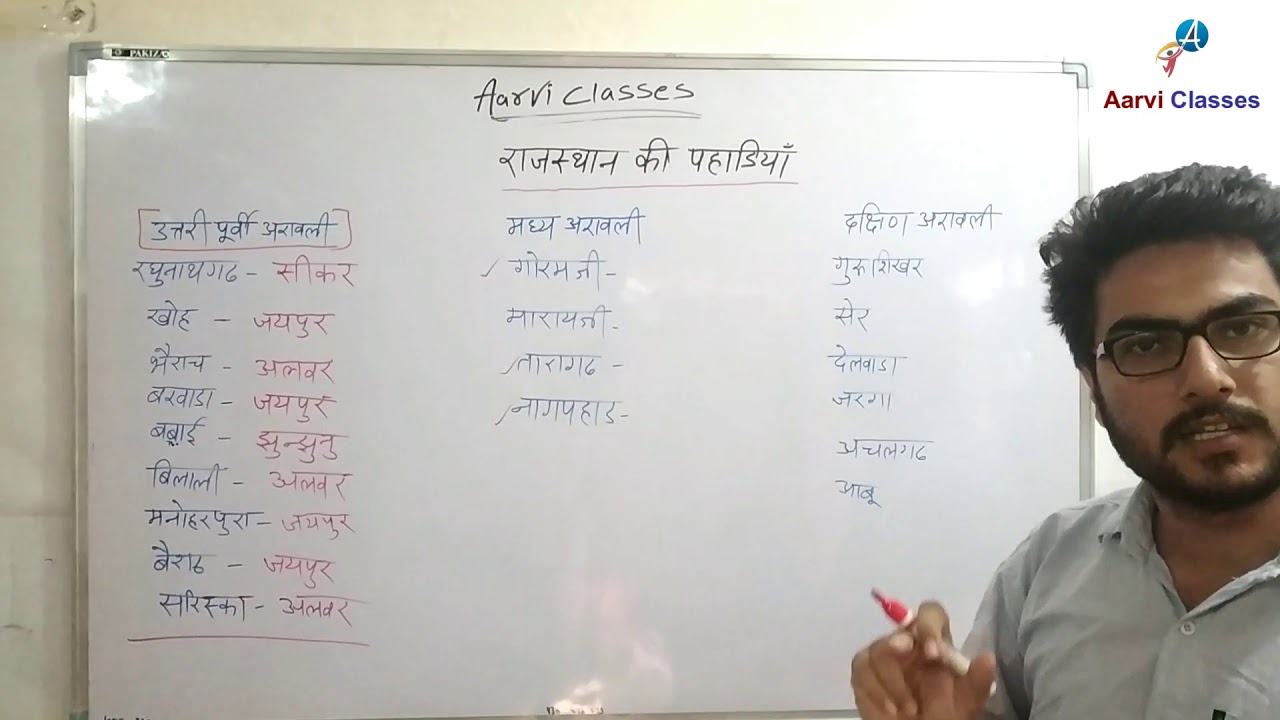 PAKIZA
Aarvi Classes
Aarvi Classes
राजस्थान की पहाडियाँ
उत्तरी पूर्वी अरावली
रघुनाथगढ - सीकर
खोह - जयपुर
भैराच - अलवर
बरवाडा - जयपुर
बबाई - झुन्झुनु
बिलाली - अलवर
मनोहरपुरा - जयपुर
बैराठ - जयपुर
सरिस्का - अलवर
मध्य अरावली
गोरमजी -
मारायजी -
तारागढ -
नागपहाड -
दक्षिण अरावली
गुरूशिखर
सेर
देलवाडा
जरगा
अचलगढ
आबू